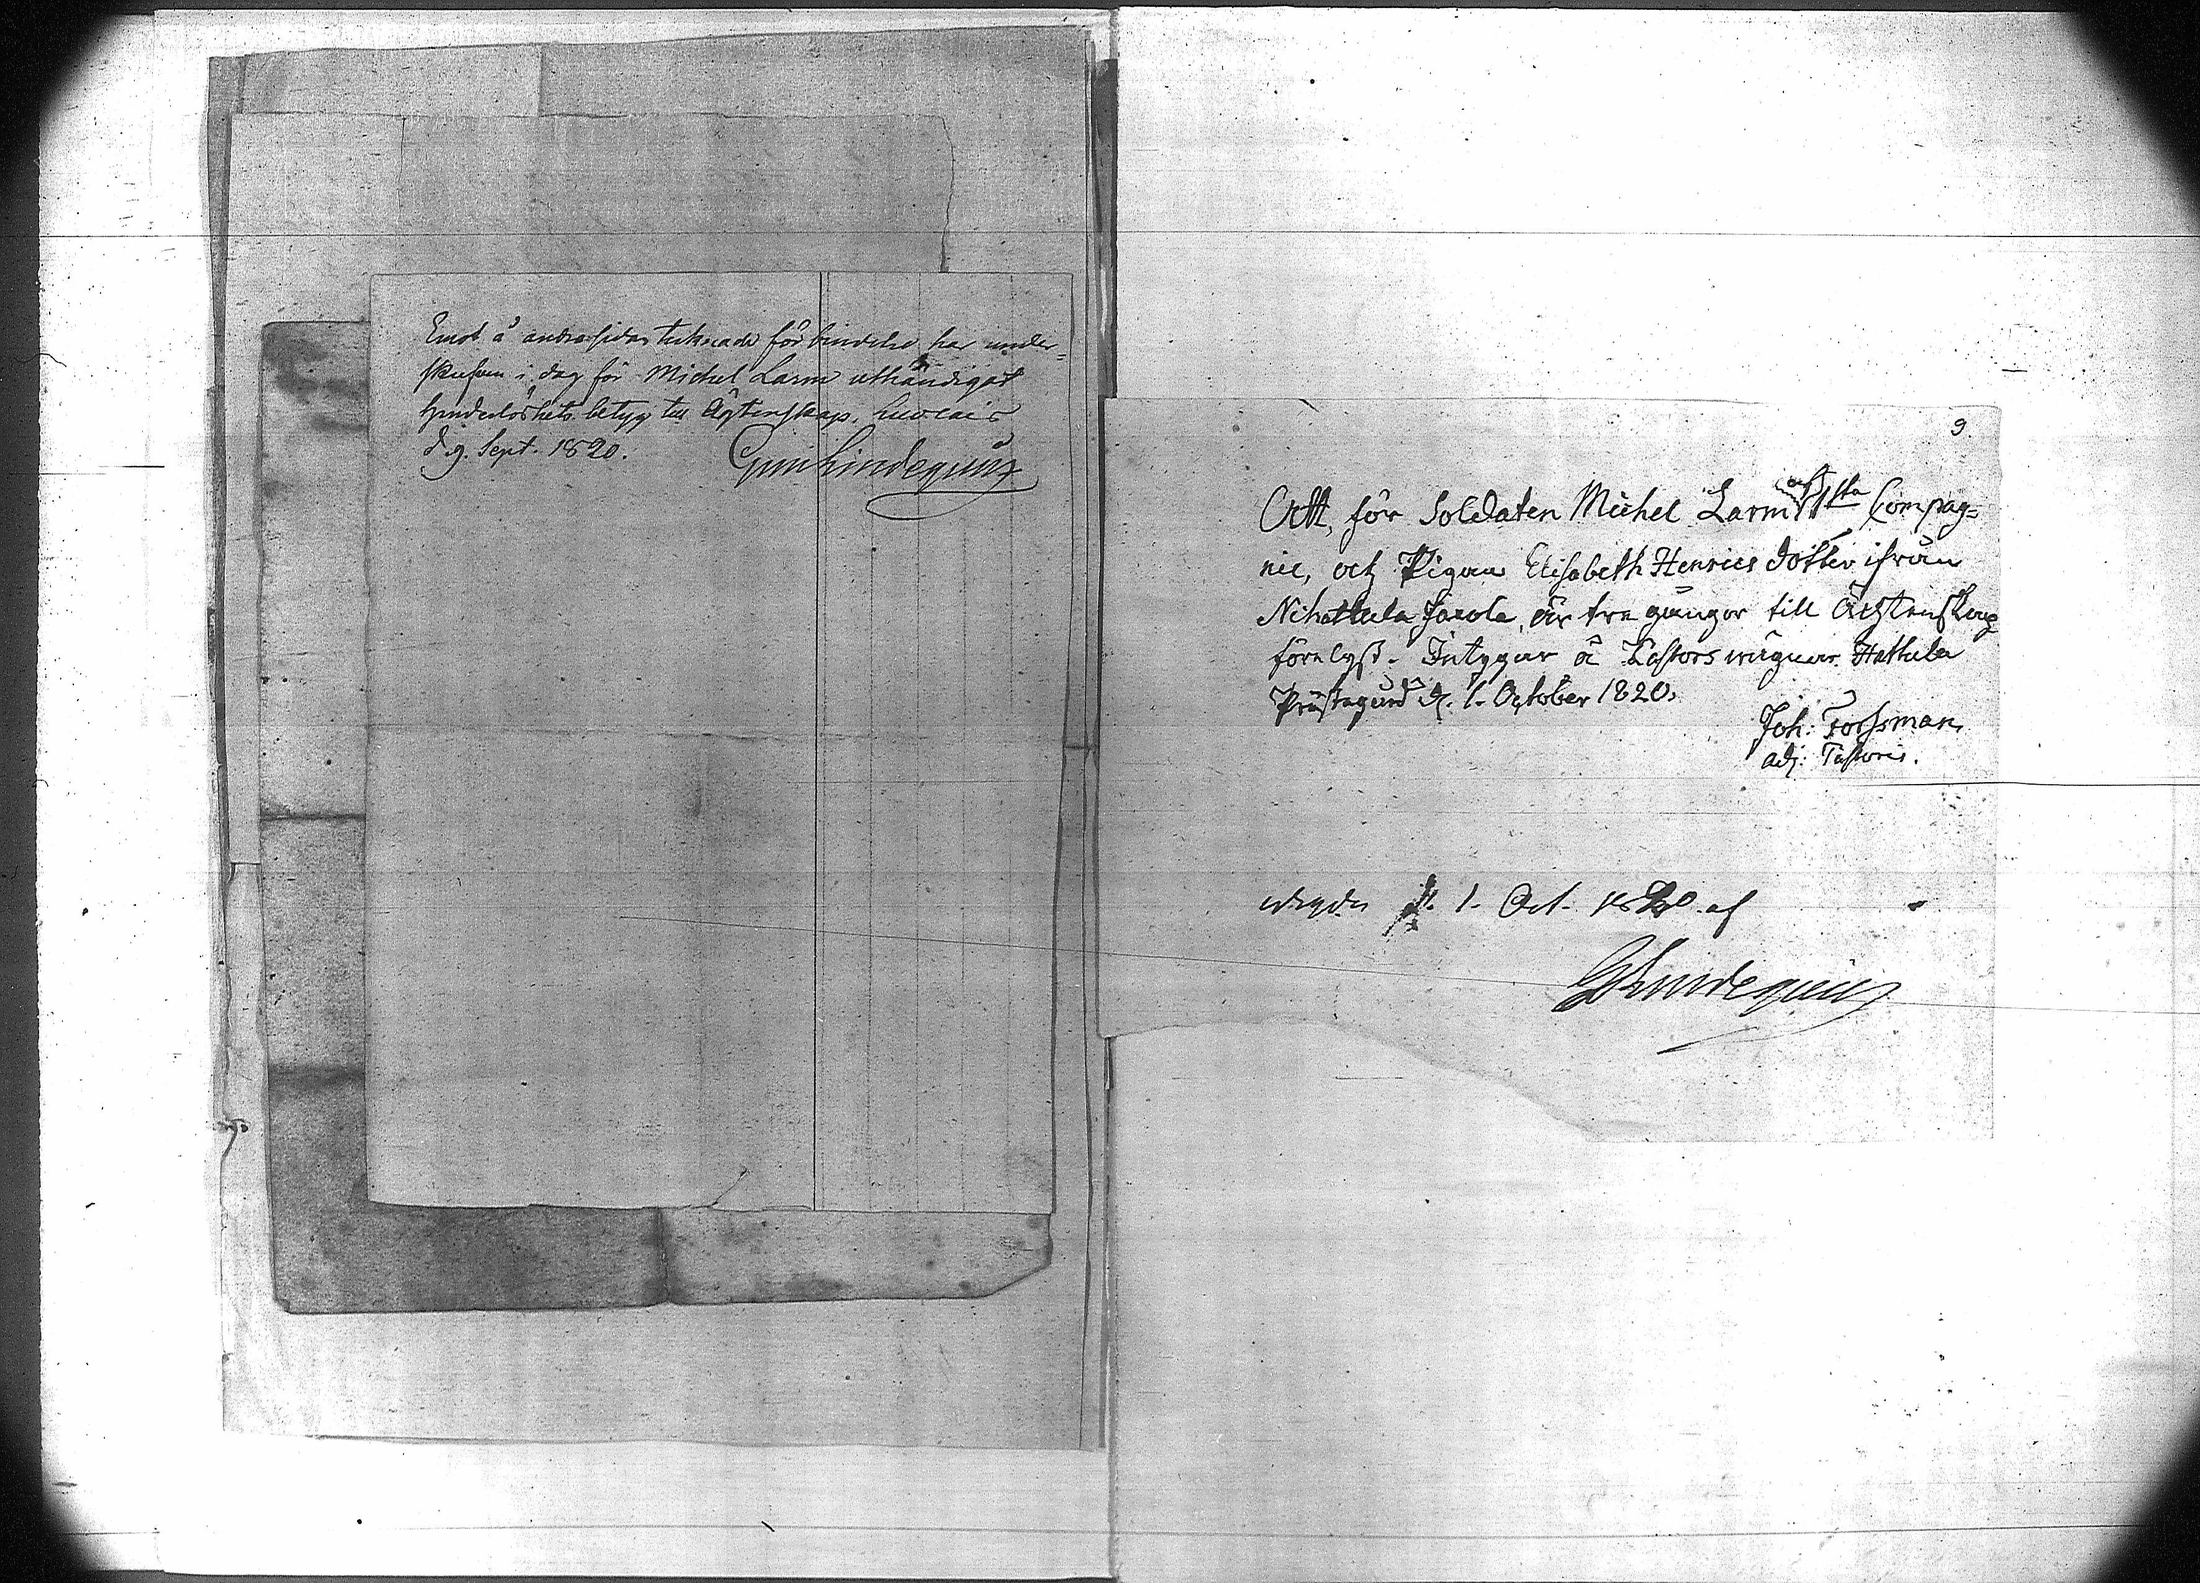 Emot å andra sidan tecknade förbindelse har under-
skrefven i dag för Michel Larm uthändigat
hinderlöshets betyg till Ägtenskap.
d. 9. Sept. 1820. Lindeqvist
9.
Att, för Soldaten Michel Larm af 1sta Compag=
nie, och Pigan Elisabeth Henrics dotter ifrån
Nihattula Jarola, är tre gånger till Ächtenskap
förelyst. Intygar å Pastors wägnar. Hattula
Prästegård d. 1. October 1820.
Joh: Forssman,
adj: Pastoris.
d. 1. Oct. 1820 af
Lindeqvist